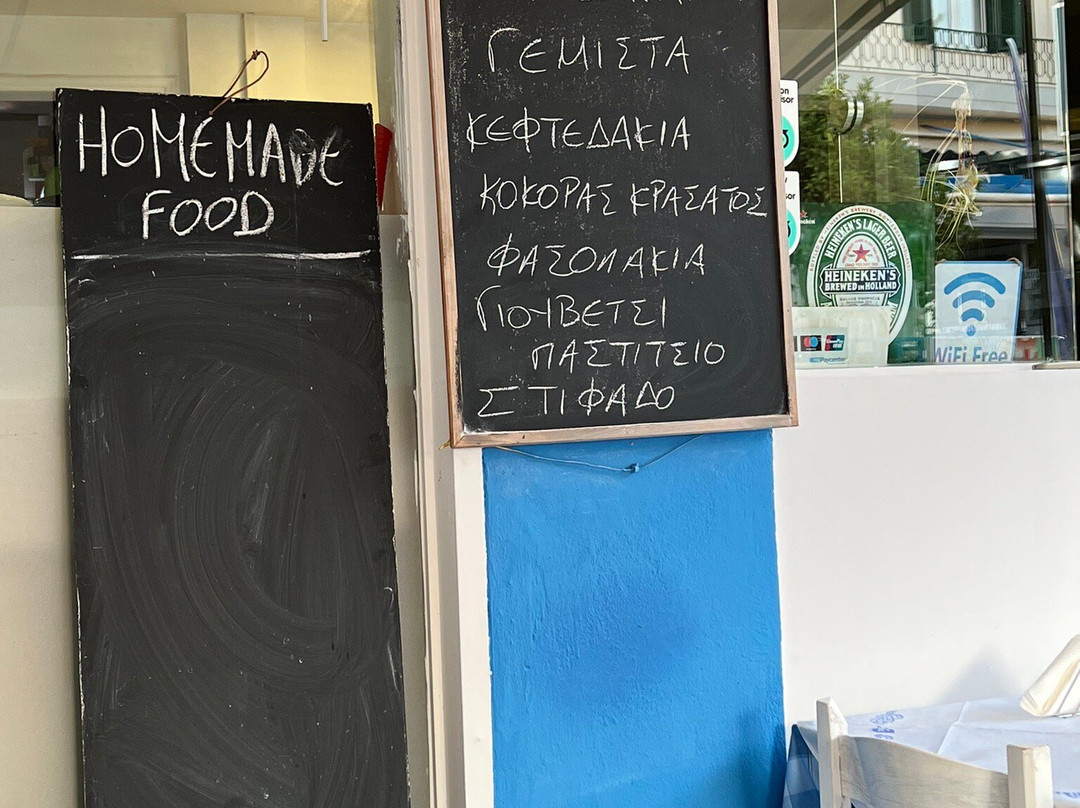 HOMEMADE
FOOD
ΓΕΜΙΣΤΑ
ΚΕΦΤΕΔΑΚΙΑ
ΚΟΚΟΡΑΣ ΚΡΑΣΑΤΟΣ
ΦΑΣΟΛΑΚΙΑ
ΓΙΟΥΒΕΤΣΙ
ΠΑΣΤΙΤΣΙΟ
ΣΤΙΦΑΔΟ
HEINEKEN'S LAGER BEER
HEINEKEN'S
BREWED IN HOLLAND
WiFi Free